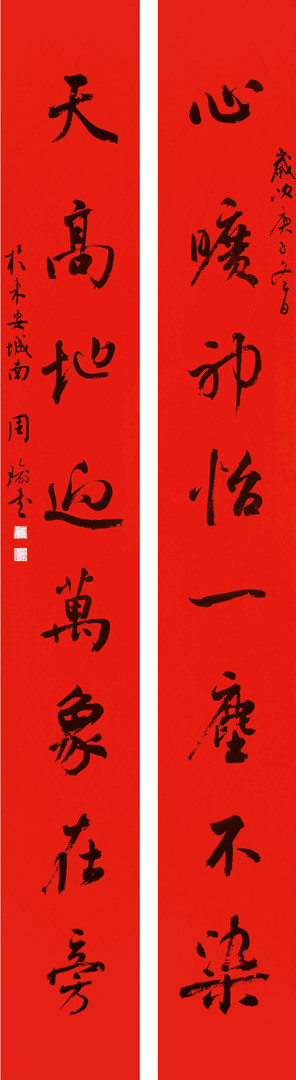 歲次庚子冬日
心曠神怡一塵不染
天高地迥萬象在旁
於安城南 周